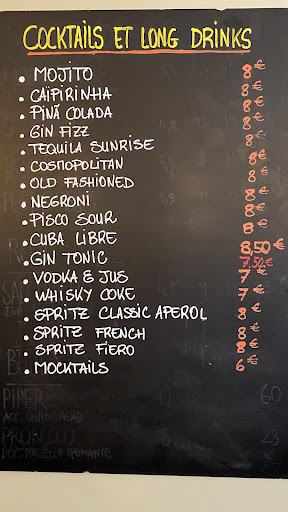 COCKTAILS ET LONG DRINKS
• MOJITO 8€
• CAIPIRINHA 8€
• PINÃ COLADA 8€
• GIN FIZZ 8€
• TEQUILA SUNRISE 8€
• COSMOPOLITAN 8€
• OLD FASHIONED 8€
• NEGRONI 8€
• PISCO SOUR 8€
• CUBA LIBRE 8,50€
• GIN TONIC 7,50€
• VODKA & JUS 7€
• WHISKY COKE 7€
• SPRITZ CLASSIC APEROL 8€
• SPRITZ FRENCH 8€
• SPRITZ FIERO 8€
• MOCKTAILS 6€
PIPER 12 60
PROSECCO 5 28